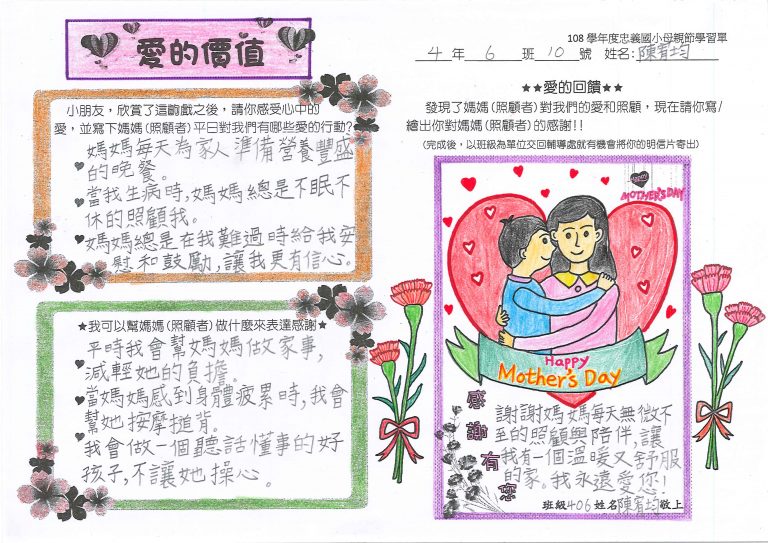 愛的價值
小朋友，欣賞了這齣戲之後，請你感受心中的
愛，並寫下媽媽(照顧者)平日對我們有哪些愛的行動?
媽媽每天為家人準備營養豐盛
的晚餐。
當我生病時,媽媽總是不眠不
休的照顧我。
媽媽總是在我難過時給我安
慰和鼓勵,讓我更有信心。
★我可以幫媽媽(照顧者)做什麼來表達感謝★
平時我會幫媽媽做家事,
減輕她的負擔。
當媽媽感到身體疲累時,我會
幫她按摩搥背。
我會做一個聽話懂事的好
孩子,不讓她操心。
108 學年度忠義國小母親節學習單
4 年 6 班 10 號 姓名:陳宥均
★★愛的回饋★★
發現了媽媽(照顧者)對我們的愛和照顧，現在請你寫/
繪出你對媽媽(照顧者)的感謝!!
(完成後，以班級為單位交回輔導處就有機會將你的明信片寄出)
Happy
MOTHER'S DAY
Happy
Mother's Day
感謝有您
謝謝媽媽每天無微不
至的照顧與陪伴,讓
我有一個溫暖又舒服
的家。我永遠愛您!
班級406姓名陳宥均敬上